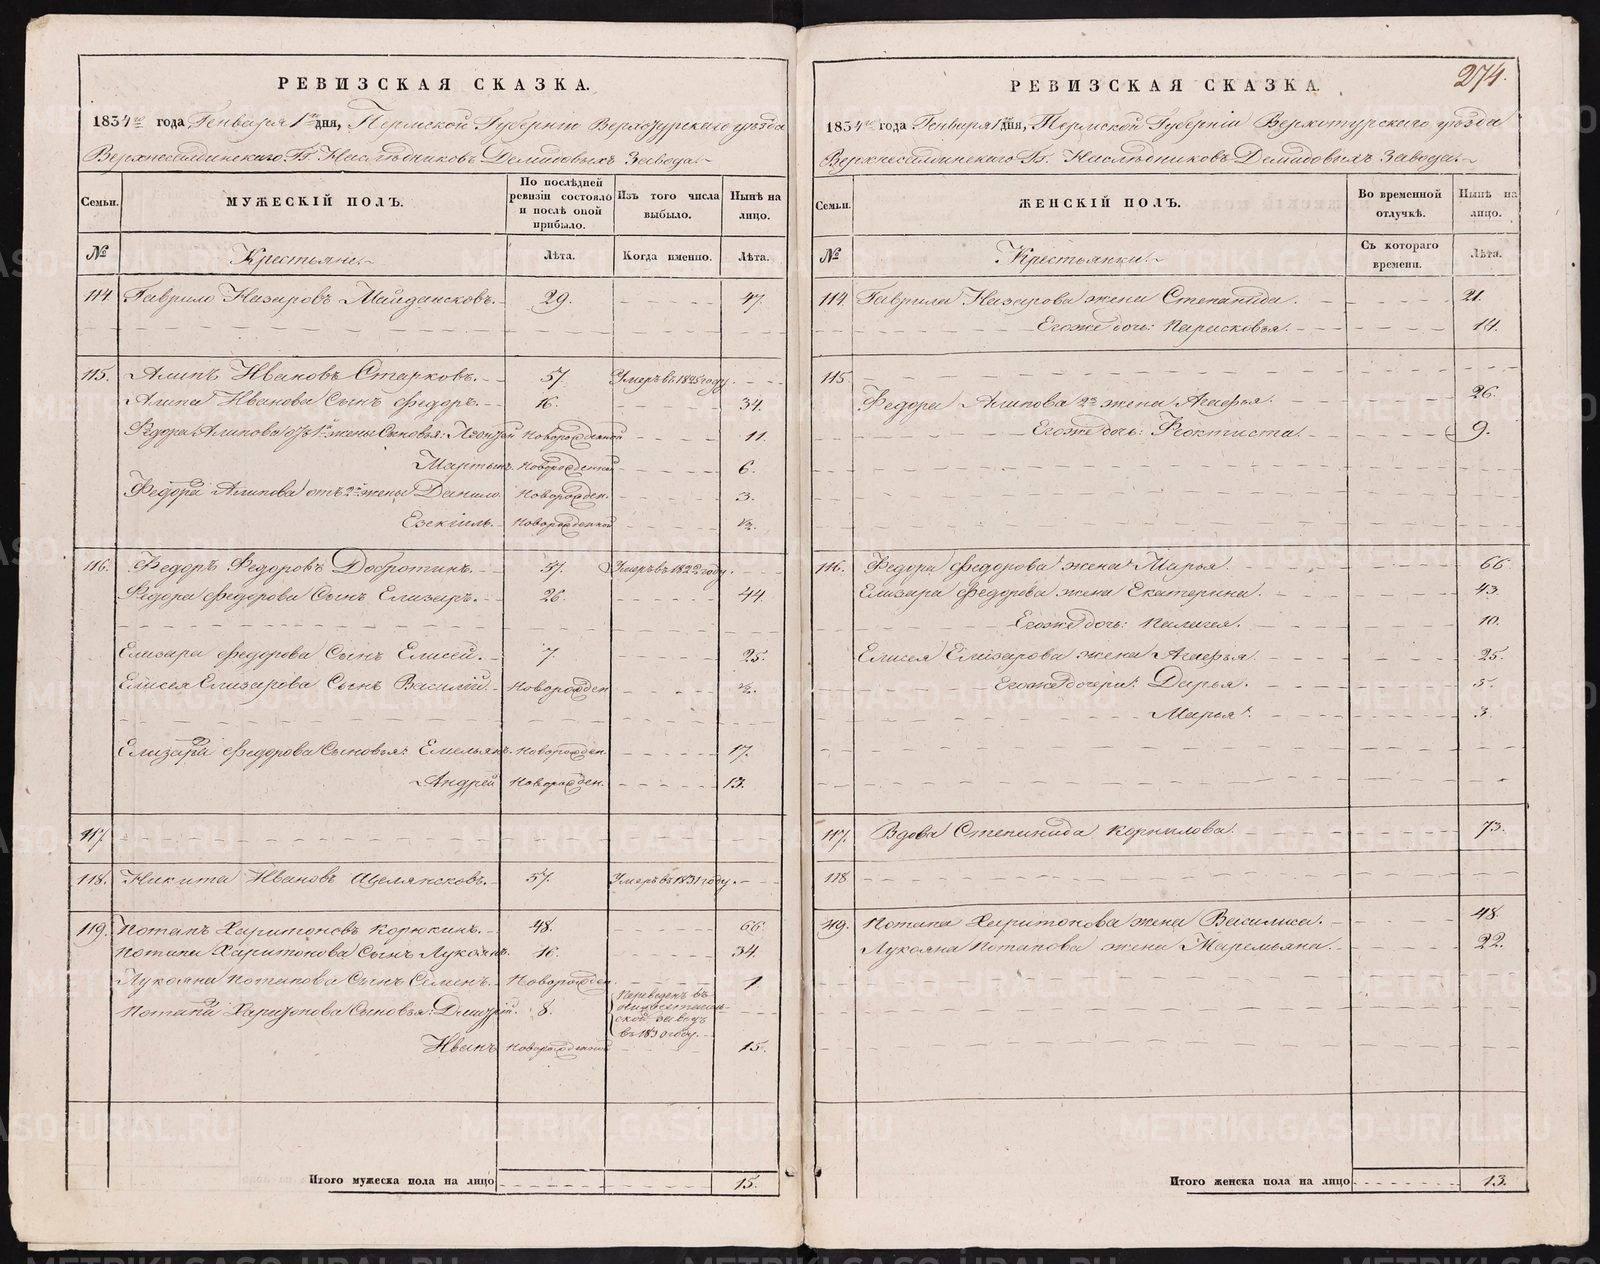 РЕВИЗСКАЯ СКАЗКА.
1834го года Генваря 1го дня, Пермской Губерніи Верхотурскаго уѣзда
Верхнесалдинскаго Гг. Наслѣдниковъ Демидовыхъ Завода.
Семьи.
МУЖЕСКІЙ ПОЛЪ.
По послѣдней ревизіи состояло и послѣ оной прибыло.
Изъ того числа выбыло.
Нынѣ на лицо.
№
Крестьяне.
Лѣта.
Когда именно.
Лѣта.
114. Гаврило Назаровъ Майдансковъ. 29. 47.
115. Алипъ Ивановъ Старковъ. 57. Умеръ въ 1825 году.
Алипа Иванова Сынъ Федоръ. 16. 34.
Федора Алипова отъ 1й жены Сыновья: Леонтей Новорожденной 11.
Мартынъ. Новорожденной 6.
Федора Алипова отъ 2й жены Данило. Новорожден. 3.
Езекіиль. Новорожденной ½.
116. Федоръ Федоровъ Добротинъ. 57. Умеръ въ 1822 году.
Федора Федорова Сынъ Елизаръ. 26. 44.
Елизара Федорова Сынъ Елисей. 7. 25.
Елисея Елизарова Сынъ Василій. Новорожден ½.
Елизара Федорова Сыновья: Емельянъ. Новорожден. 17.
Андрей Новорожден. 13.
117.
118. Никита Ивановъ Щелянсковъ. 57. Умеръ въ 1831 году.
119. Потапъ Харитоновъ Корюкинъ. 48. 66.
Потапа Харитонова Сынъ Лукоянъ. 16. 34.
Лукояна Потапова Сынъ Семенъ. Новорожден. 1
Потапа Харитонова Сыновья: Дмитрій. 8. Переведенъ въ
ской заводъ
въ 1830 году.
Иванъ Новорожденной 15.
Итого мужеска пола на лицо 15.
274.
РЕВИЗСКАЯ СКАЗКА.
1834го года Генваря 1го дня, Пермской Губерніи Верхотурскаго уѣзда
Верхнесалдинскаго Гг. Наслѣдниковъ Демидовыхъ Завода.
Семьи.
ЖЕНСКІЙ ПОЛЪ.
Во временной отлучкѣ.
Нынѣ на лицо.
№
Крестьянки.
Съ котораго времени.
Лѣта.
114. Гаврила Назарова жена Степанида. 21.
Его же дочь: Парасковья. 14.
115.
Федора Алипова 2я жена Агафья. 26.
Его же дочь: Феоктиста. 9.
116. Федора Федорова жена Марья. 66.
Елизара Федорова жена Екатерина. 43.
Его же дочь: Палагея. 10.
Елисея Елизарова жена Агафья. 25.
Его же дочери: Дарья. 5.
Марья. 3.
117. Вдова Степанида Корнилова. 73.
118.
119. Потапа Харитонова жена Василиса. 48.
Лукояна Потапова жена Маремьяна. 22.
Итого женска пола на лицо 13.
METRIKI.GASO-URAL.RU